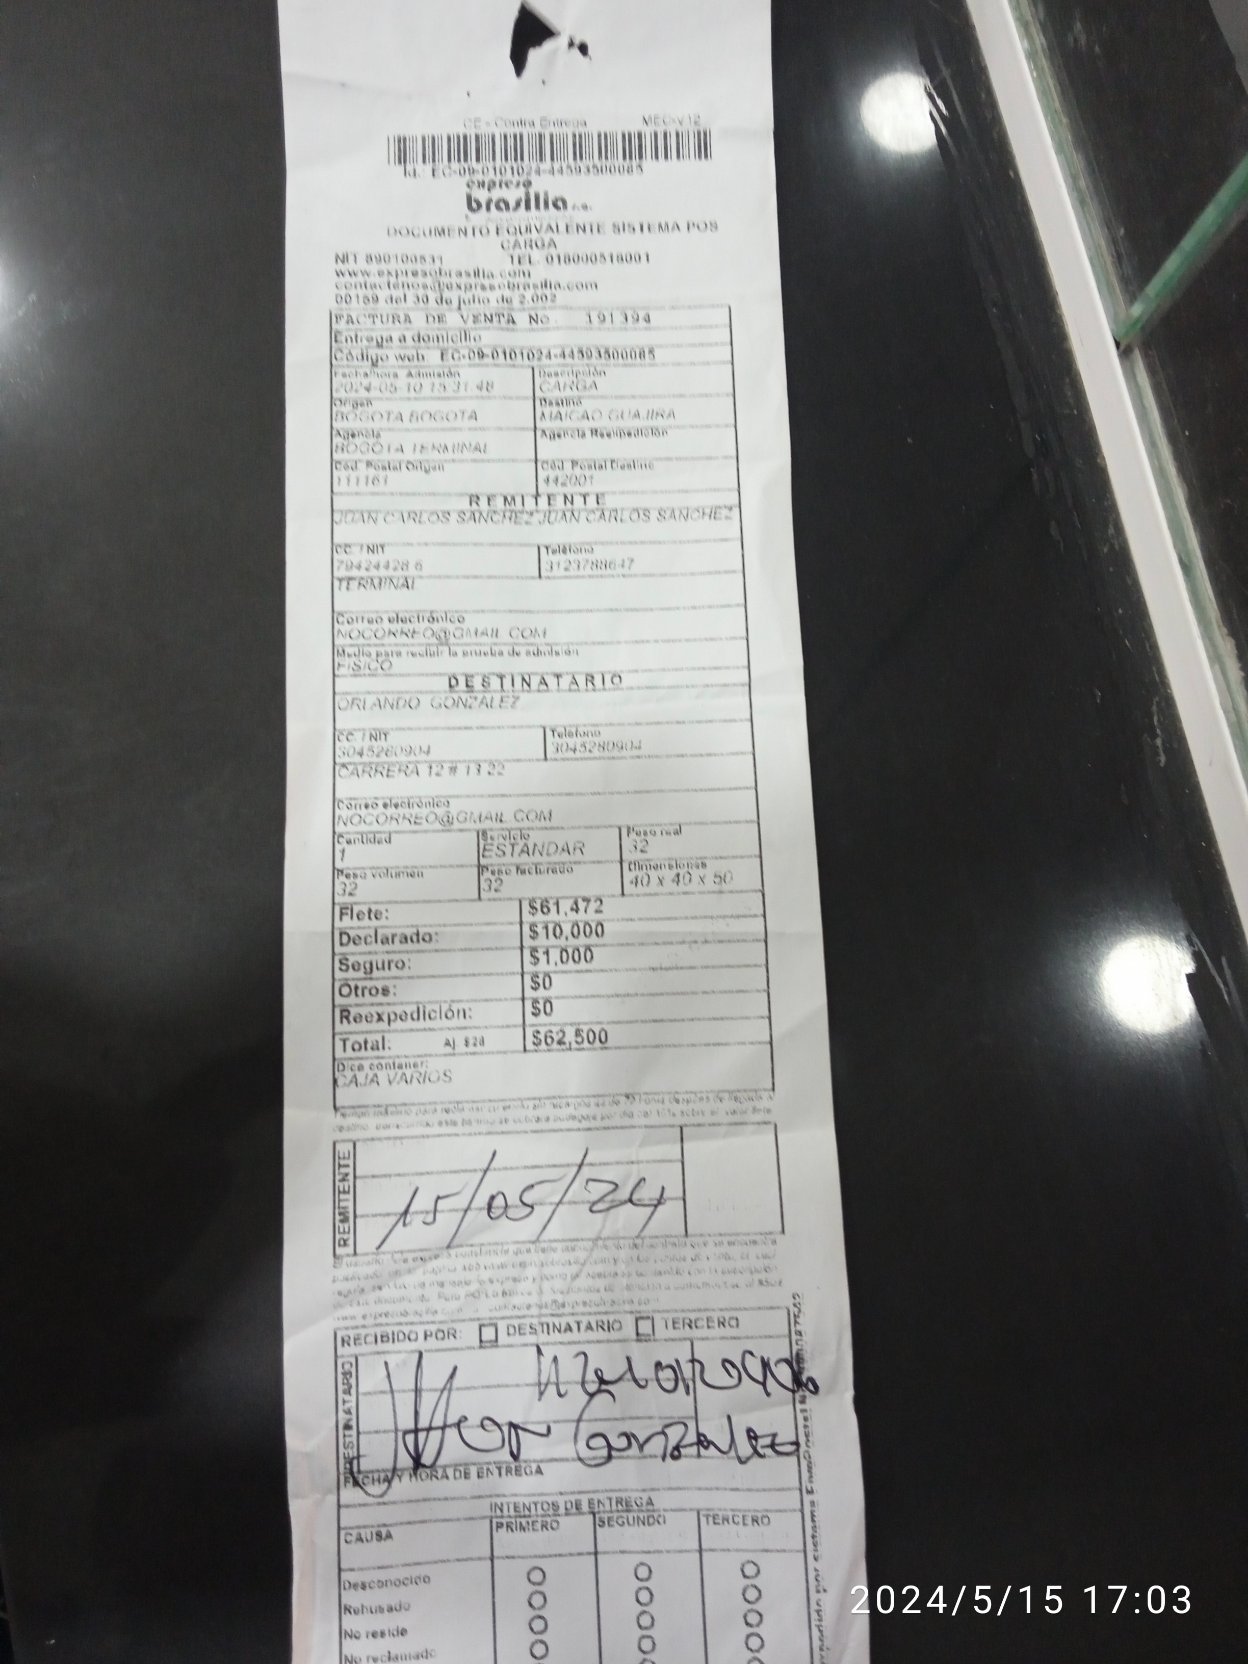 CE - Contra Entrega MEC-V12
Id.: EC-09-0101024-44593500085
expreso
brasilia s.a.
DOCUMENTO EQUIVALENTE SISTEMA POS
CARGA
NIT 890100531 TEL. 018000518001
www.expresobrasilia.com
contactenos@expresobrasilia.com
00159 del 30 de julio de 2.002
FACTURA DE VENTA No. 191394
Entrega a domicilio
Código web: EC-09-0101024-44593500085
Fecha/hora Admisión Descripción
2024-05-10 15:31:48 CARGA
Origen Destino
BOGOTA BOGOTA MAICAO GUAJIRA
Agencia Agencia Reexpedición
BOGOTA TERMINAL
Cód. Postal Origen Cód. Postal Destino
111161 442001
REMITENTE
JUAN CARLOS SANCHEZ JUAN CARLOS SANCHEZ
CC. / NIT Teléfono
79424428 6 3123788647
TERMINAL
Correo electrónico
NOCORREO@GMAIL.COM
Medio para recibir la prueba de admisión
FISICO
DESTINATARIO
ORLANDO GONZALEZ
CC. / NIT Teléfono
3045280904 3045280904
CARRERA 12 # 13 22
Correo electrónico
NOCORREO@GMAIL.COM
Cantidad Servicio Peso real
1 ESTANDAR 32
Peso volumen Peso facturado Dimensiones
32 32 40 x 40 x 50
Flete: $61,472
Declarado: $10,000
Seguro: $1,000
Otros: $0
Reexpedición: $0
Total: Aj. $28 $62,500
Dice contener:
CAJA VARIOS
REMITENTE
15/05/24
RECIBIDO POR: DESTINATARIO TERCERO
DESTINATARIO
Gonzalez
FECHA Y HORA DE ENTREGA
INTENTOS DE ENTREGA
CAUSA PRIMERO SEGUNDO TERCERO
Desconocido
Rehusado
No reside
No reclamado
2024/5/15 17:03